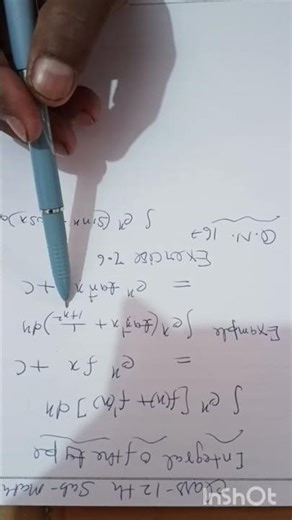 Class-12th Sub-math
Integral of the type
∫ eˣ [f(x) + f'(x)] dx
= eˣ fx + C
Example ∫ eˣ (tan⁻¹x + 1/1+x²) dx
= eˣ tan⁻¹x + C
Exercise 7.6
Q.N. 16→
∫ eˣ (sinx
InShOt